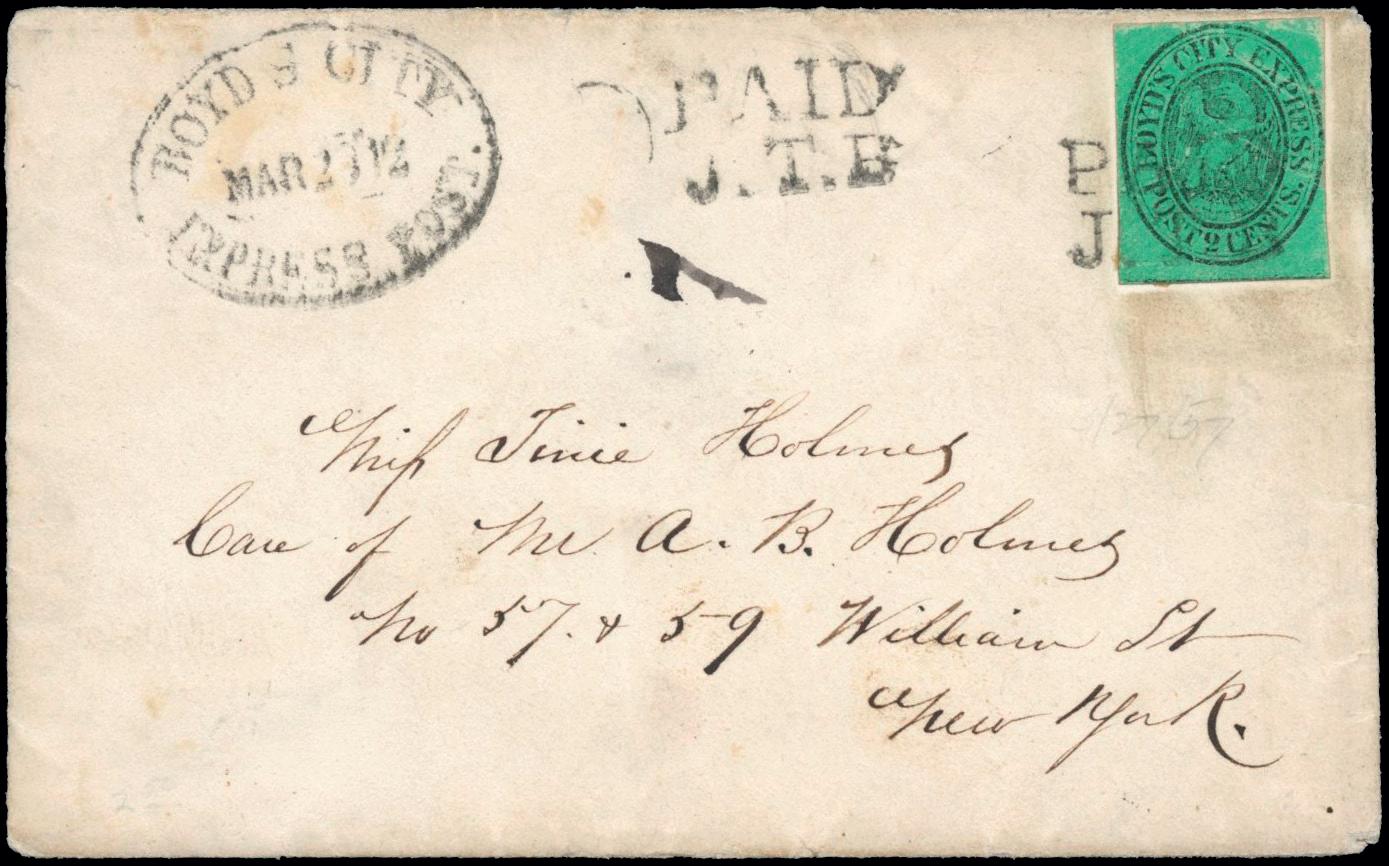 BOYD'S CITY
MAR 27 12
EXPRESS POST.
PAID
J.T.B
P
J
BOYD'S CITY EXPRESS.
POST 2 CENTS.
Miss Tinie Holmes
Care of Mr A. B. Holmes
No 57. & 59 William St
New York.
3/27/57